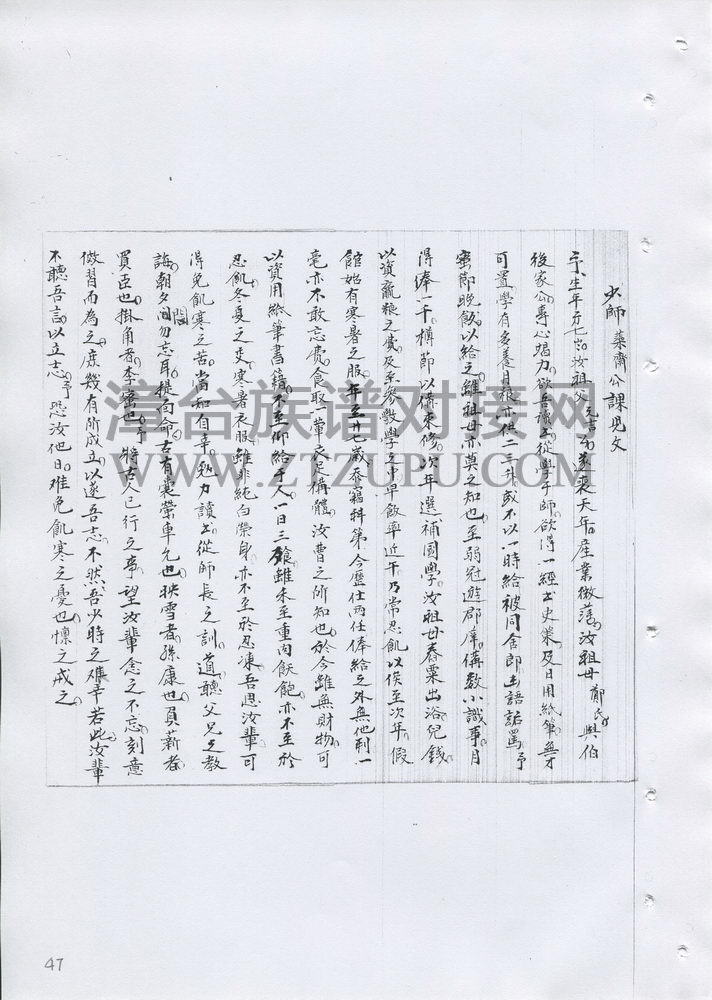 少師葉齋公課児文
予生年方七岁汝祖父元吉公弃天年産業微薄汝祖母鄭氏與伯
後家公專心竭力欲吾從學于師欲得一經出史策及日用紙筆無才
可置學有多養月粮亦但二三升或不以一時給被同舍郎出語詬罵予
密節晚飯以給之雖祖母亦莫之知也至弱冠遊郡庠偁数小識事月
得俸一千樽節以偹束修次年選補國學汝祖母舂粟出浴兒錢
以資齎粮之費及至参数學之中早飯率近午乃常忍飢以俟至次年假
館始有寒暑之服年至廿七嵗忝竊科第今歷仕兩任俸給之外無他利一
毫亦不敢忘費食取一葷衣足偁體汝曹之所知也於今雖無財物可
以資用紙筆書籍不至仰給于人一日三飱雖未至重肉飫飽亦不至於
忍飢冬夏之变寒暑衣服雖非純白榮身亦不至於忍凍吾思汝輩可
得免飢寒之苦當知自幸勉力讀书從師長之訓道聽父兄之教
誨朝夕間勿忘耳提面命古有囊螢車允也映雪者孫康也負薪者
買臣也掛角者李密也予將古人已行之事望汝輩念之不忘刻意
傚習而為之庶幾有所成立以遂吾志不然吾少時之艱辛若此汝輩
不聽吾言以立志予恐汝他日难免飢寒之憂也懔之戒之
淳台族谱对接网
WWW.ZTZUPU.COM
47